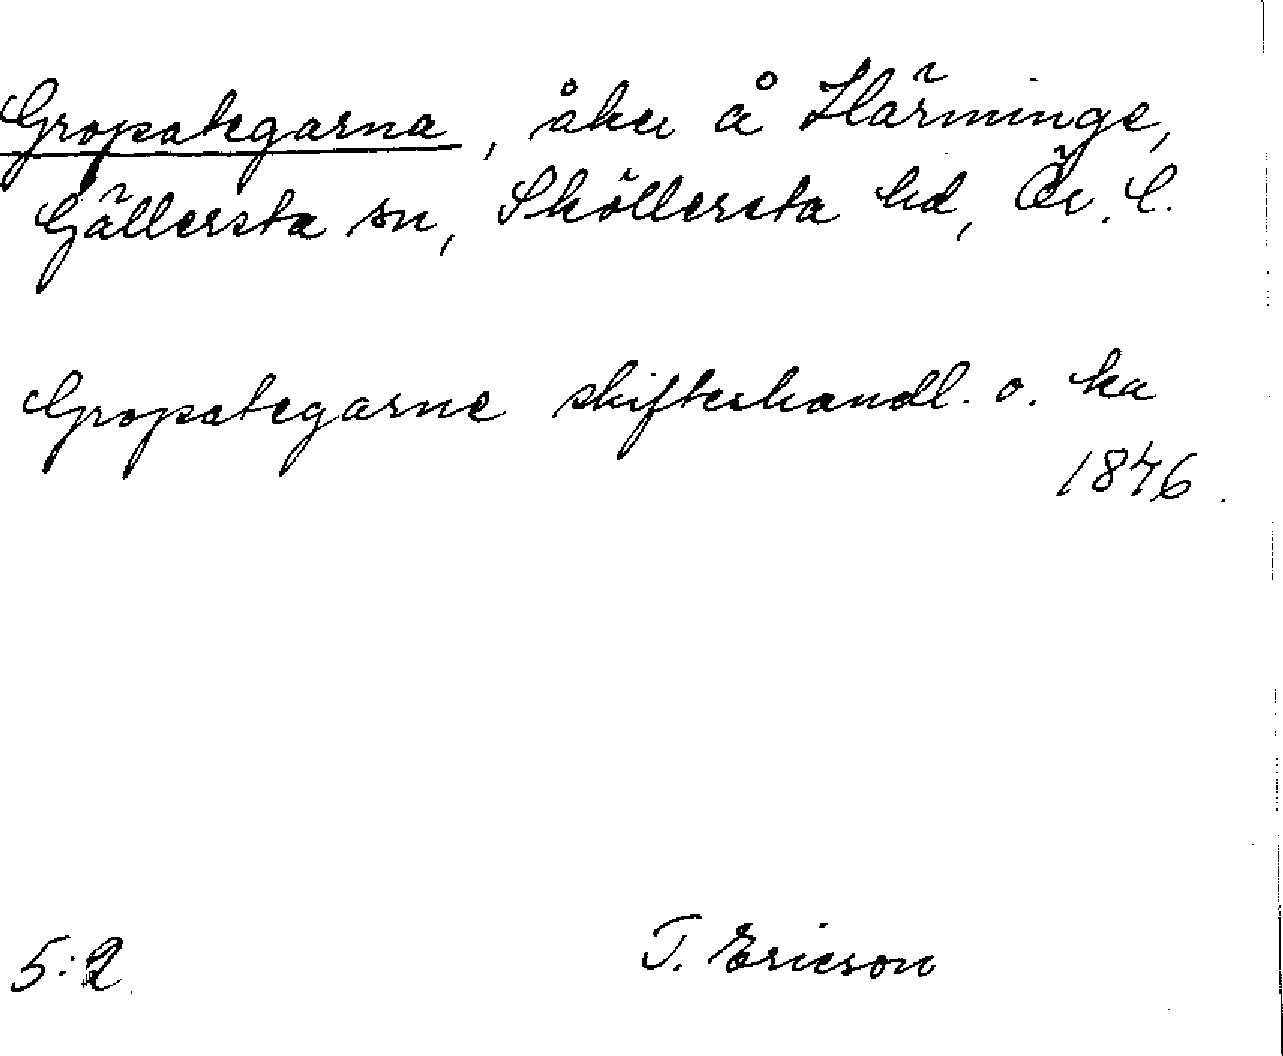 Gropategarna, åker å Härminge,
Gällersta sn, Sköllersta hd, Ör. l.
Gropategarne skifteshandl. o. ka
1846.
5:2 T. Ericson